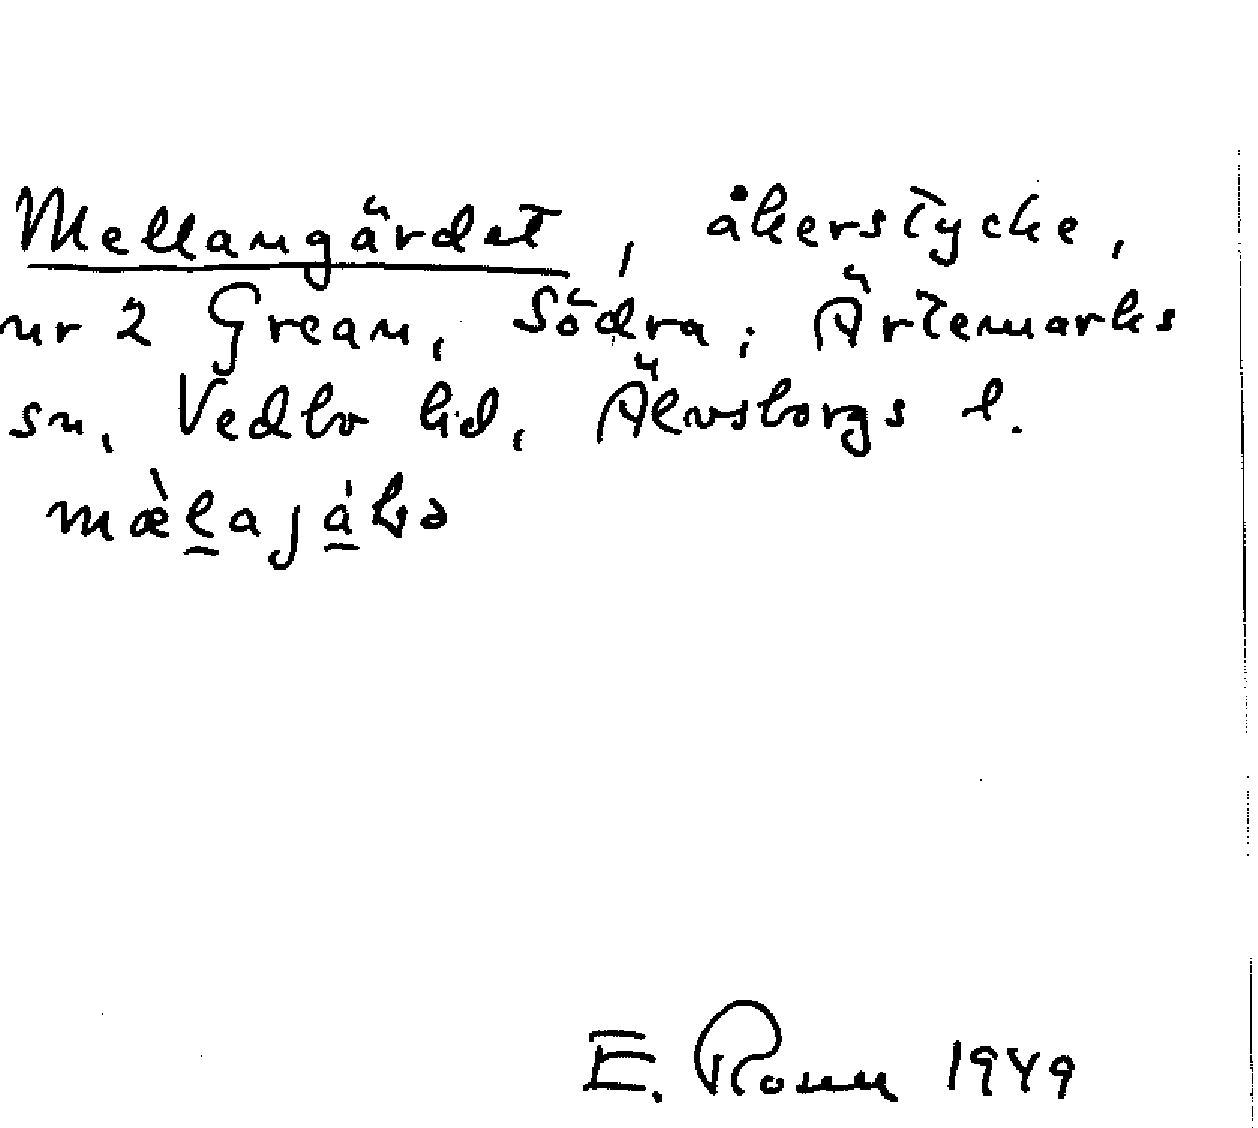 Mellangärdet, åkerstycke,
nr 2 Grean, Södra; Ärtemarks
sn, Vedbo hd, Älvsborgs l.
E. Rosell 1949